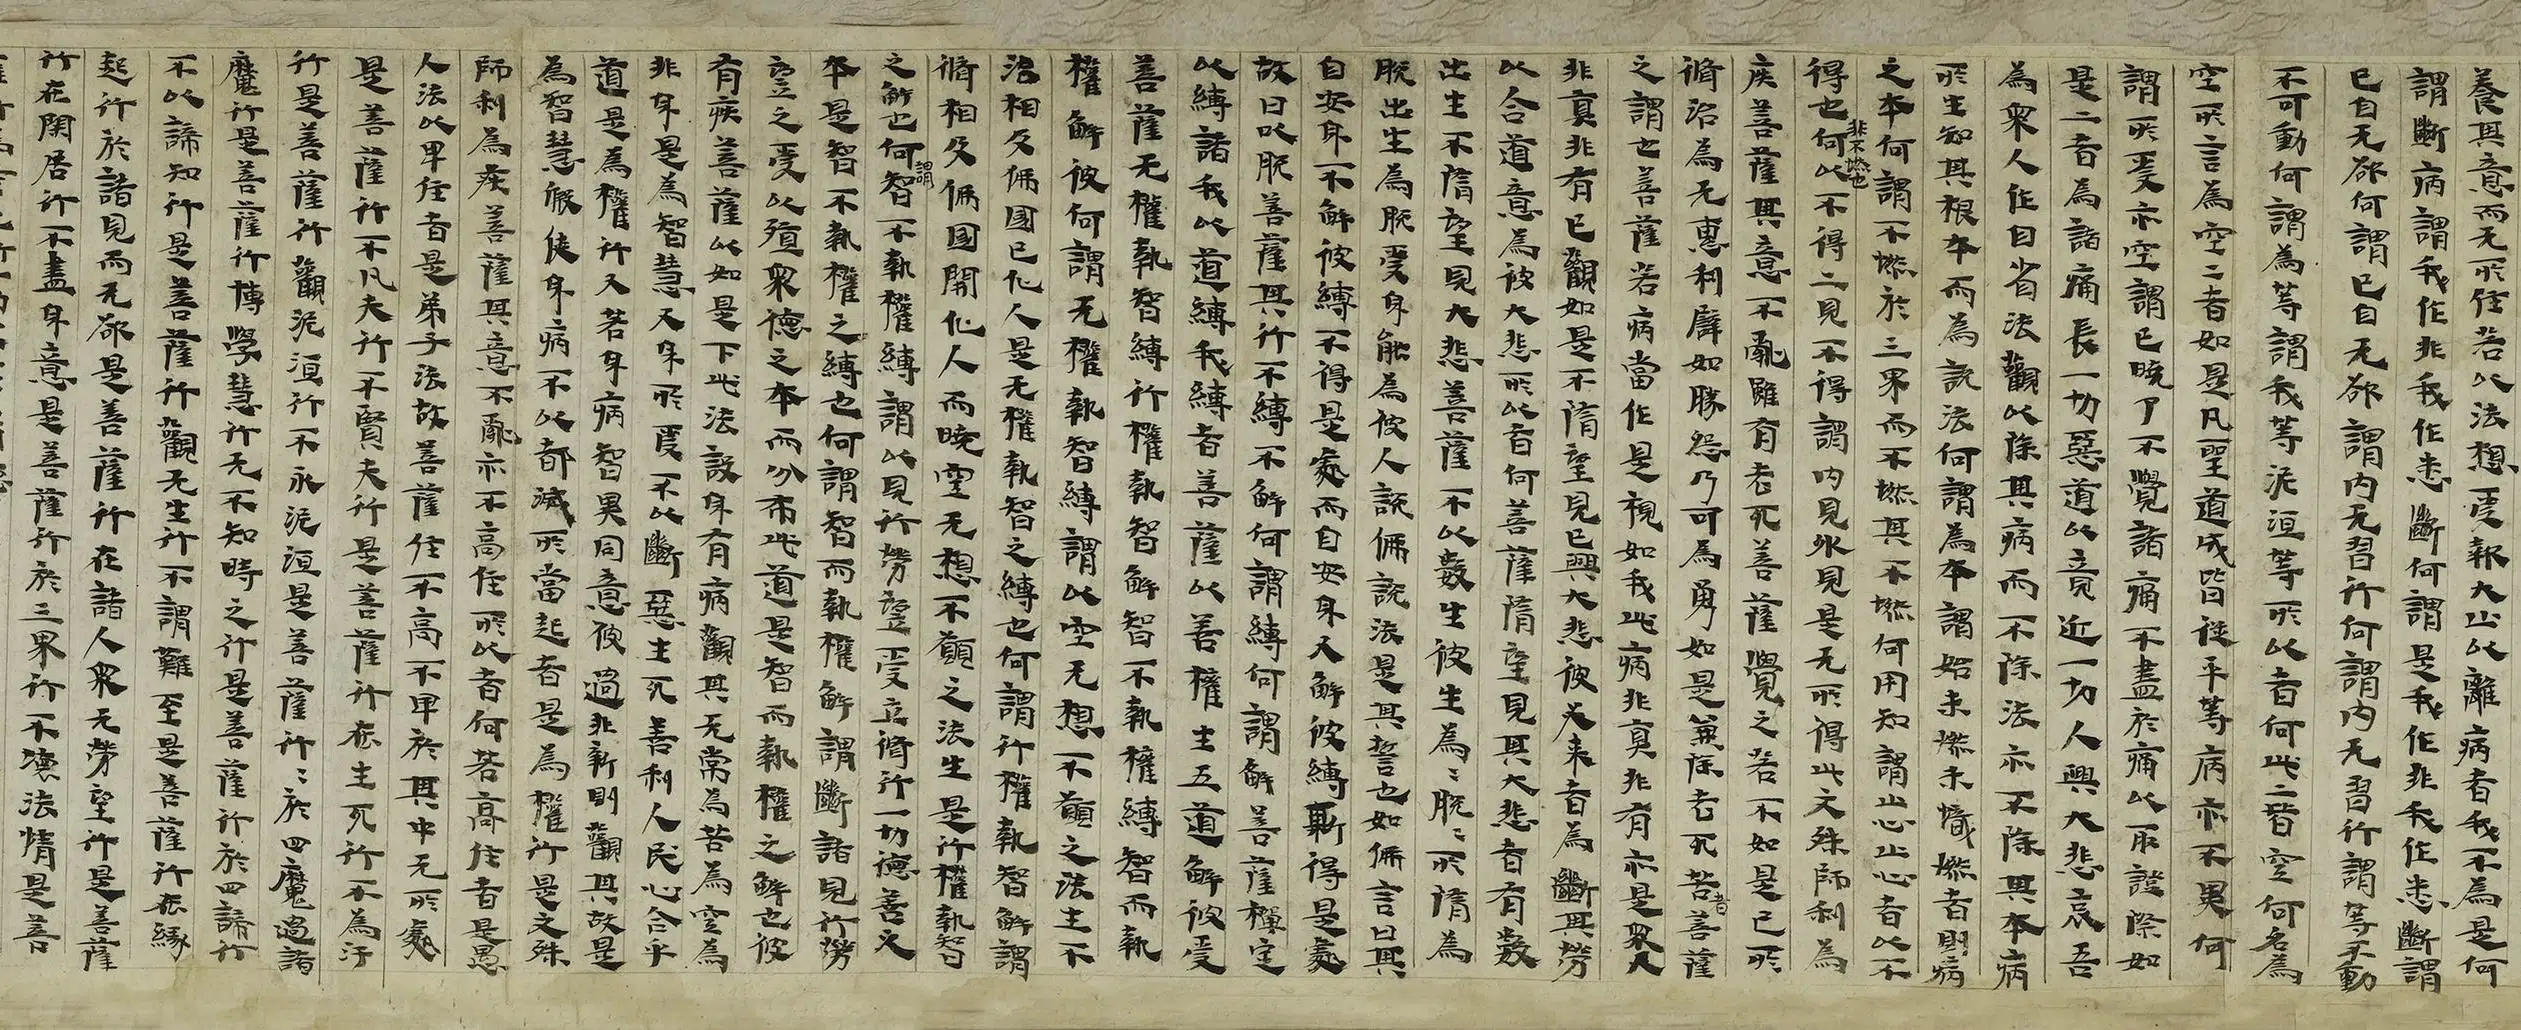 養其意而无所住若以法想受報大止以離病者我不為是何
謂斷病謂我作非我作悉斷何謂是我作非我作悉斷謂
已自无欲何謂已自无欲謂内无習行何謂内无習行謂等不動
不可動何謂為等謂我等泥洹等所以者何此二皆空何名為
空所言為空二者如是凡聖道成皆従平等病亦不異何
謂所受亦空謂已曉了不覺諸痛不盡於痛以取證際如
是二者為諸痛長一切惡道以竟近一切人興大悲哀吾
為衆人作自省法觀以除其病而不除法亦不除其本病
所生知其根本而為説法何謂為本謂始未燃未熾燃者則病
之本何謂不燃於三界而不燃其不燃何用知謂止心止心者以不
得也非不燃也何以不得二見不得謂内見外見是无所得此文殊師利為
疾善薩其意不亂雖有老死善薩覺之若不如是已所
脩治為无惠利譬如勝怨乃可為勇如是兼除老死苦者善薩
之謂也善薩若病當作是視如我此病非真非有亦是衆人
非真非有已觀如是不隋望見已興大悲彼夫来者為斷其勞
以人合道意為彼大悲所以者何善薩隋望見其大悲者有數
出生不隋望見大悲善薩不以數生彼生為〻脱〻所隋為
脱出生為脱受身能為彼人説佛説法是其誓也如佛言曰其
自安身不解彼縛不得是處而自安身又解彼縛斯得是處
故曰以脱善薩其行不縛不解何謂縛何謂解善薩禪定
以縛諸我以道縛我縛者善薩以善權生五道解彼受
善薩无權執智縛行權執智解智不執權縛智而執
權解彼何謂无權執智縛謂以空无想不願之法生不
治相及佛國已化人是无權執智之縛也何謂行權執智解謂
脩相及佛國開化人而曉空无想不願之法生是行權執智
之解也何謂智不執權縛謂以見行勞望受立脩行一切德善之
本是智不執權之縛也何謂智而執權解謂斷諸見行勞
望之受以殖衆德之本而分布此道是智而執權之解也彼
有疾善薩以如是下此法設身有病觀其无常為苦為空為
非身是為智慧又身所受不以斷惡生死善利人民心合乎
道是為權行又若身病智異同意彼過非新則觀其故是
為智慧假使身病不以都滅所當起者是為權行是文殊
師利為疾善薩其意不亂亦不高住所以者何若高住者是愚
人法以卑住者是弟子法故善薩住不高不卑於其中无所處
是善薩行不凡夫行不賢夫行是善薩行在生死行不為汙
行是善薩行觀泥洹行不永泥洹是善薩行〻於四魔過諸
魔行是善薩行博學慧行无不知時之行是善薩行於四諦行
不以諦知行是善薩行觀无生行不謂難至是善薩行在緣
起行於諸見而无欲是善薩行在諸人衆无勞望行是善薩
行在閑居行不盡身意是善薩行於三界行不壞法情是善